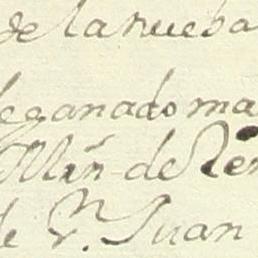 de la nueba
de ganado ma
Min de Ten
de Dn. Juan